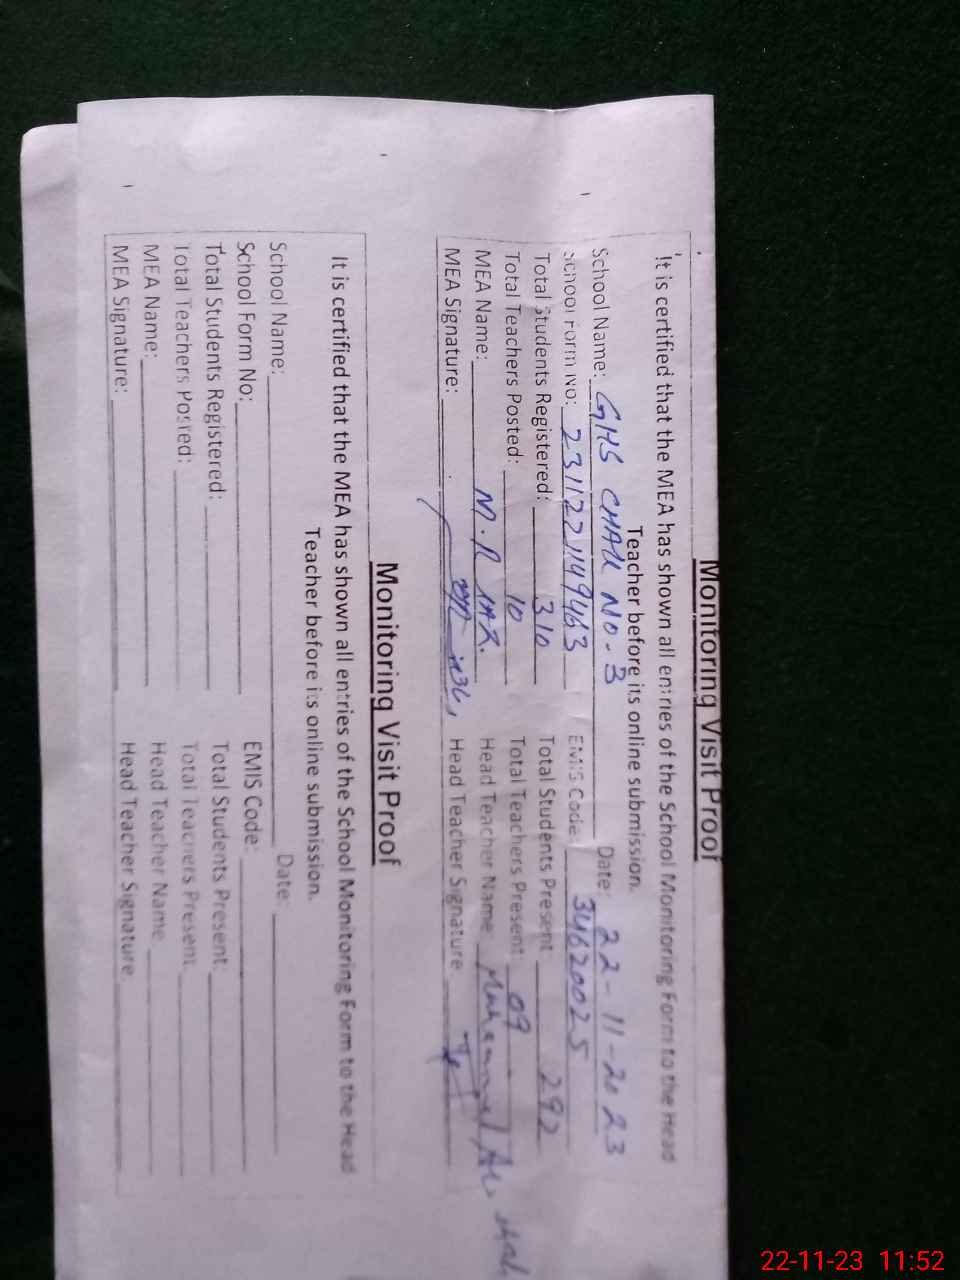 Monitoring Visit Proof
It is certified that the MEA has shown all entries of the School Monitoring Form to the Head
Teacher before its online submission.
School Name: GHS CHAK NO. 3 Date: 22-11-2023
School Form No: EMIS Code: 34620025
Total Students Registered: 310 Total Students Present: 292
Total Teachers Posted: 10 Total Teachers Present: 09
MEA Name: Head Teacher Name: Muhammad
MEA Signature: Head Teacher Signature:
Monitoring Visit Proof
It is certified that the MEA has shown all entries of the School Monitoring Form to the Head
Teacher before its online submission.
School Name: Date:
School Form No: EMIS Code:
Total Students Registered: Total Students Present:
Total Teachers Posted: Total Teachers Present:
MEA Name: Head Teacher Name
MEA Signature: Head Teacher Signature:
22-11-23 11:52